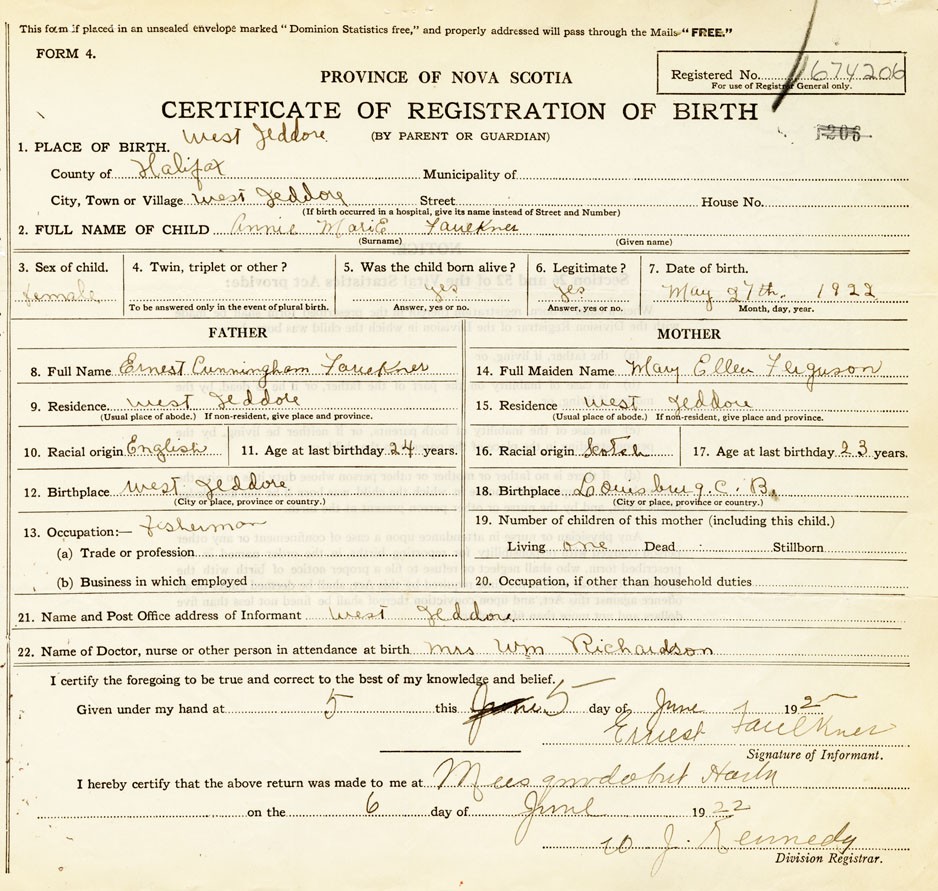 This form if placed in an unsealed envelope marked "Dominion Statistics free," and properly addressed will pass through the Mails "FREE."
FORM 4.
Registered No. 674206
For use of Registrar General only.
PROVINCE OF NOVA SCOTIA
CERTIFICATE OF REGISTRATION OF BIRTH
(BY PARENT OR GUARDIAN)
1. PLACE OF BIRTH. West Jeddore
County of Halifax Municipality of
City, Town or Village West Jeddore Street House No.
(If birth occurred in a hospital, give its name instead of Street and Number)
2. FULL NAME OF CHILD Annie Marie Faulkner
(Surname) (Given name)
3. Sex of child. female
4. Twin, triplet or other?
To be answered only in the event of plural birth.
5. Was the child born alive? yes
Answer, yes or no.
6. Legitimate? yes
Answer, yes or no.
7. Date of birth.
May 27th. 1922
Month, day, year.
FATHER
8. Full Name Ernest Cunningham Faulkner
9. Residence West Jeddore
(Usual place of abode.) If non-resident, give place and province.
10. Racial origin English 11. Age at last birthday 24 years.
12. Birthplace West Jeddore
(City or place, province or country.)
13. Occupation:— Fisherman
(a) Trade or profession
(b) Business in which employed
MOTHER
14. Full Maiden Name Mary Ellen Ferguson
15. Residence West Jeddore
(Usual place of abode.) If non-resident, give place and province.
16. Racial origin Scotch 17. Age at last birthday 23 years.
18. Birthplace Louisburg. C. B.
(City or place, province or country.)
19. Number of children of this mother (including this child.)
Living one Dead Stillborn
20. Occupation, if other than household duties
21. Name and Post Office address of Informant West Jeddore.
22. Name of Doctor, nurse or other person in attendance at birth Mrs Wm Richardson
I certify the foregoing to be true and correct to the best of my knowledge and belief.
Given under my hand at 5 this June 5 day of June 192
Ernest Faulkner
Signature of Informant.
I hereby certify that the above return was made to me at
on the 6 day of June 1922
W. J. Kennedy
Division Registrar.